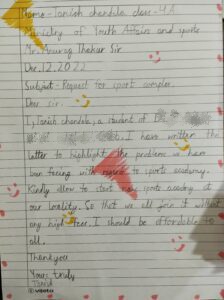 Name - Tanish chandila class - 4A
Ministry of Youth Affairs and sports
Mr. Anurag Thakur Sir
Dec. 12. 2022
Subject - Request for sport complex
Dear sir.
I, Tanish chandila, a student of D
I have written the
latter to highlight the problems we have
been facing with regard to sports academy.
Kindly allow to start new sports academy at
our locality. So that we all join it without
any high fees. I should be affordable to
all.
Thankyou
Yours truly
Tanish